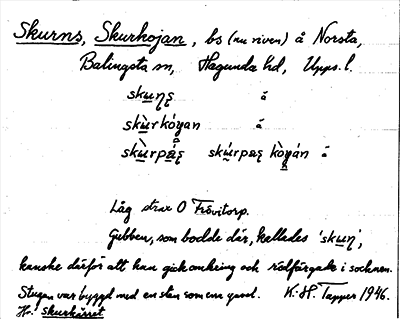 Skurns, Skurkojan, bs (nu riven) å Norsta,
Balingsta sn, Hagunda hd, Upps. l.
skɯṇṣ å
skɯ̀rkóyan å
skɯ̀rpạ́ṣ skɯ́rpaṣ kòyán å
Låg strax O Frövitorp.
Gubben, som bodde där, kallades 'skɯṇ',
kanske därför att han gick omkring och rödfärgade i socknen.
Stugan var byggd med en sten som ena gavel. K.-H. Tapper 1946.
Hv: skurkärret